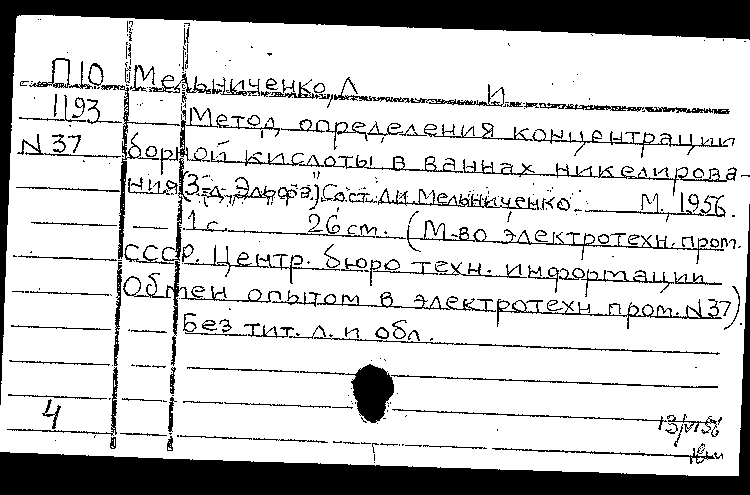 П10 Мельниченко, Л И
1193 Метод определения концентрации
N 37 борной кислоты в ваннах никелирова-
ния (З-д "Эльфа") Сост. Л.И. Мельниченко. М., 1956.
1 с. 26 см. (М-во электротехн. пром.
СССР. Центр. бюро техн. информации
Обмен опытом в электротехн пром. N 37).
Без тит. л. и обл.
4
13/VI 56